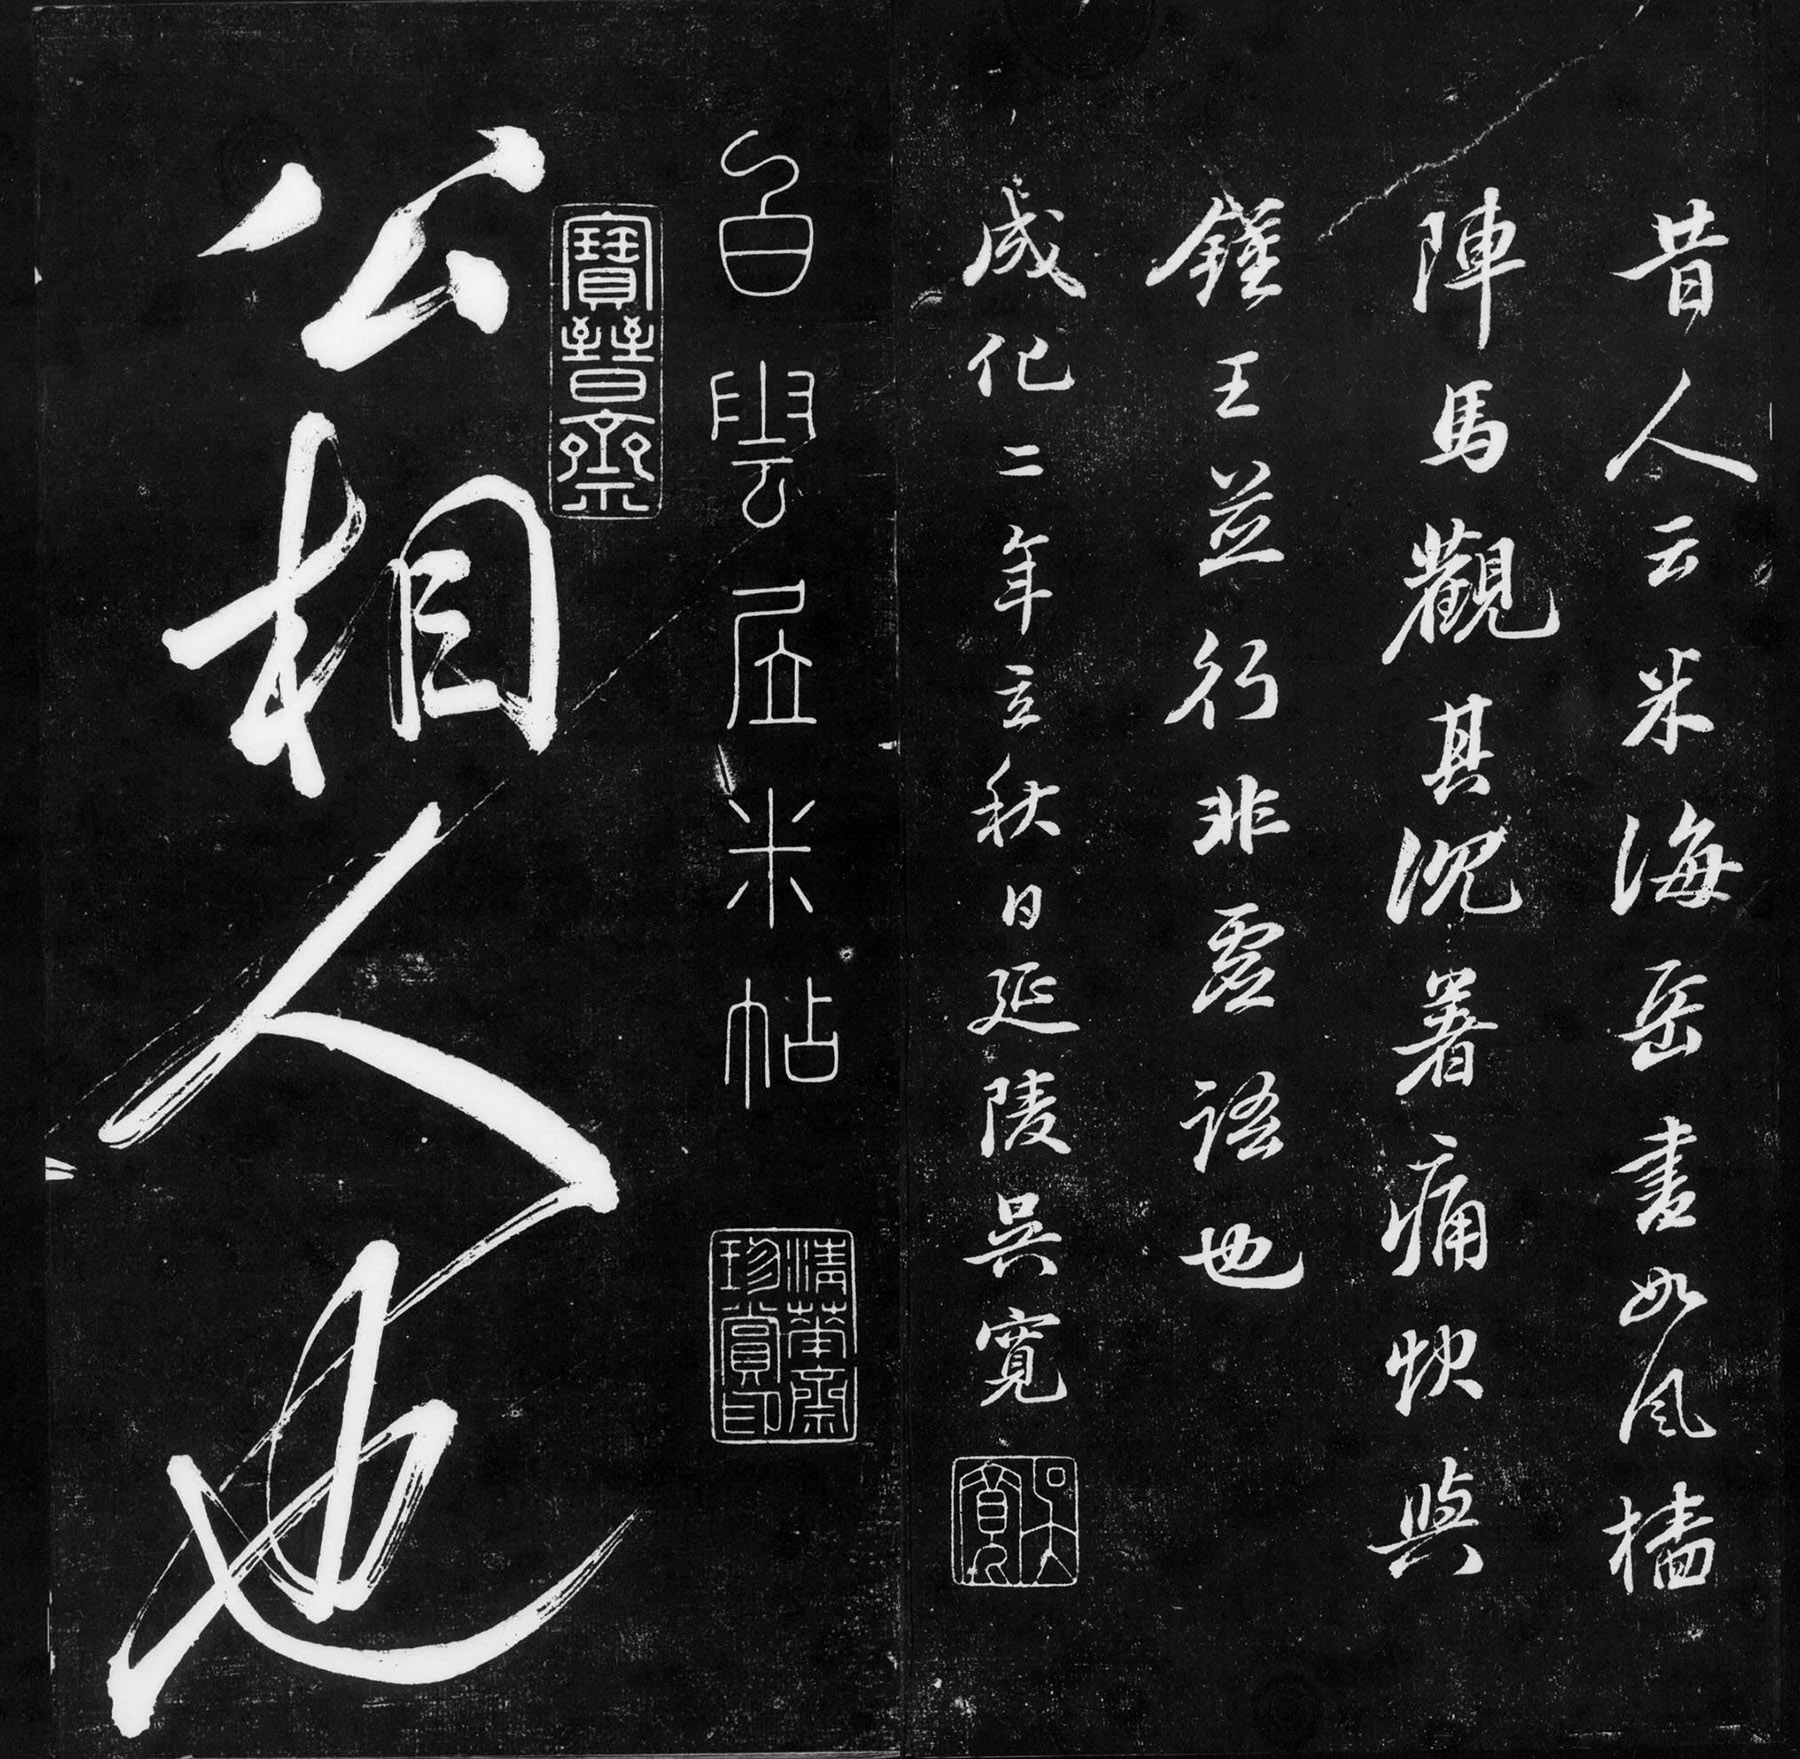 昔人云米海岳書如風檣
陣馬觀其沉著痛快與
鍾王並行非虛語也
成化二年立秋日延陵吳寬
吳寬
白雲居米帖
清華齋珍賞印
寶晉齋
公相人也